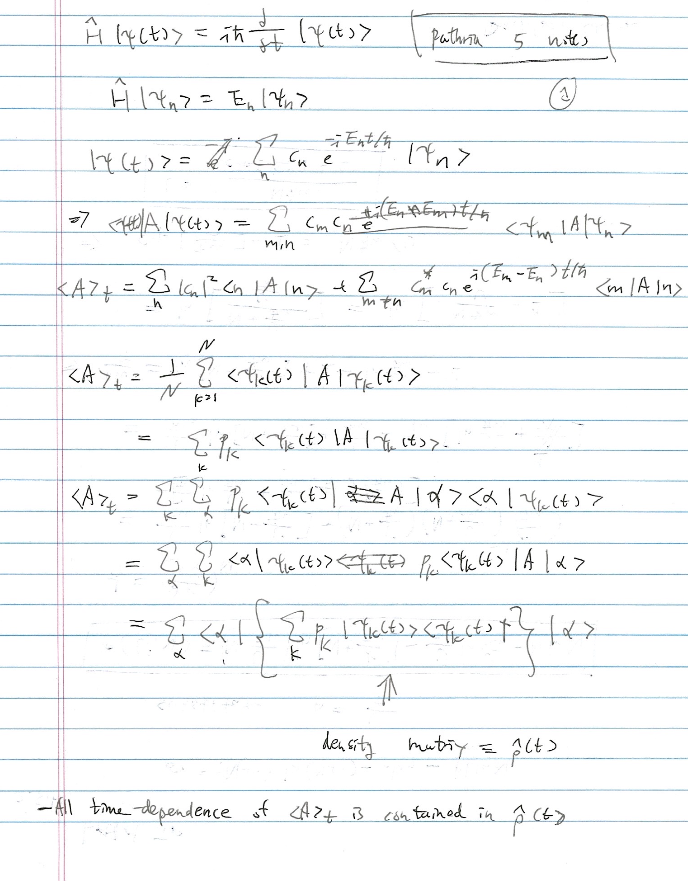 Ĥ |ψ(t)> = iħ d/dt |ψ(t)> Pathria 5 notes
Ĥ |ψ_n> = E_n |ψ_n> ①
|ψ(t)> = Σ_n c_n e^{-iE_n t/ħ} |ψ_n>
⇒ <ψ(t)|A|ψ(t)> = Σ_{m,n} c_m c_n e^{i(E_n+E_m)t/ħ} <ψ_m|A|ψ_n>
<A>_t = Σ_n |c_n|² <n|A|n> + Σ_{m≠n} c_m^* c_n e^{i(E_m-E_n)t/ħ} <m|A|n>
<A>_t = 1/N Σ_{k=1}^N <ψ_k(t)|A|ψ_k(t)>
= Σ_k p_k <ψ_k(t)|A|ψ_k(t)>.
<A>_t = Σ_k Σ_α p_k <ψ_k(t)| A |α><α|ψ_k(t)>
= Σ_α Σ_k <α|ψ_k(t)> p_k <ψ_k(t)|A|α>
= Σ_α <α| { Σ_k p_k |ψ_k(t)><ψ_k(t)| } |α>
⇑
density matrix ≡ ρ̂(t)
- All time-dependence of <A>_t is contained in ρ̂(t)